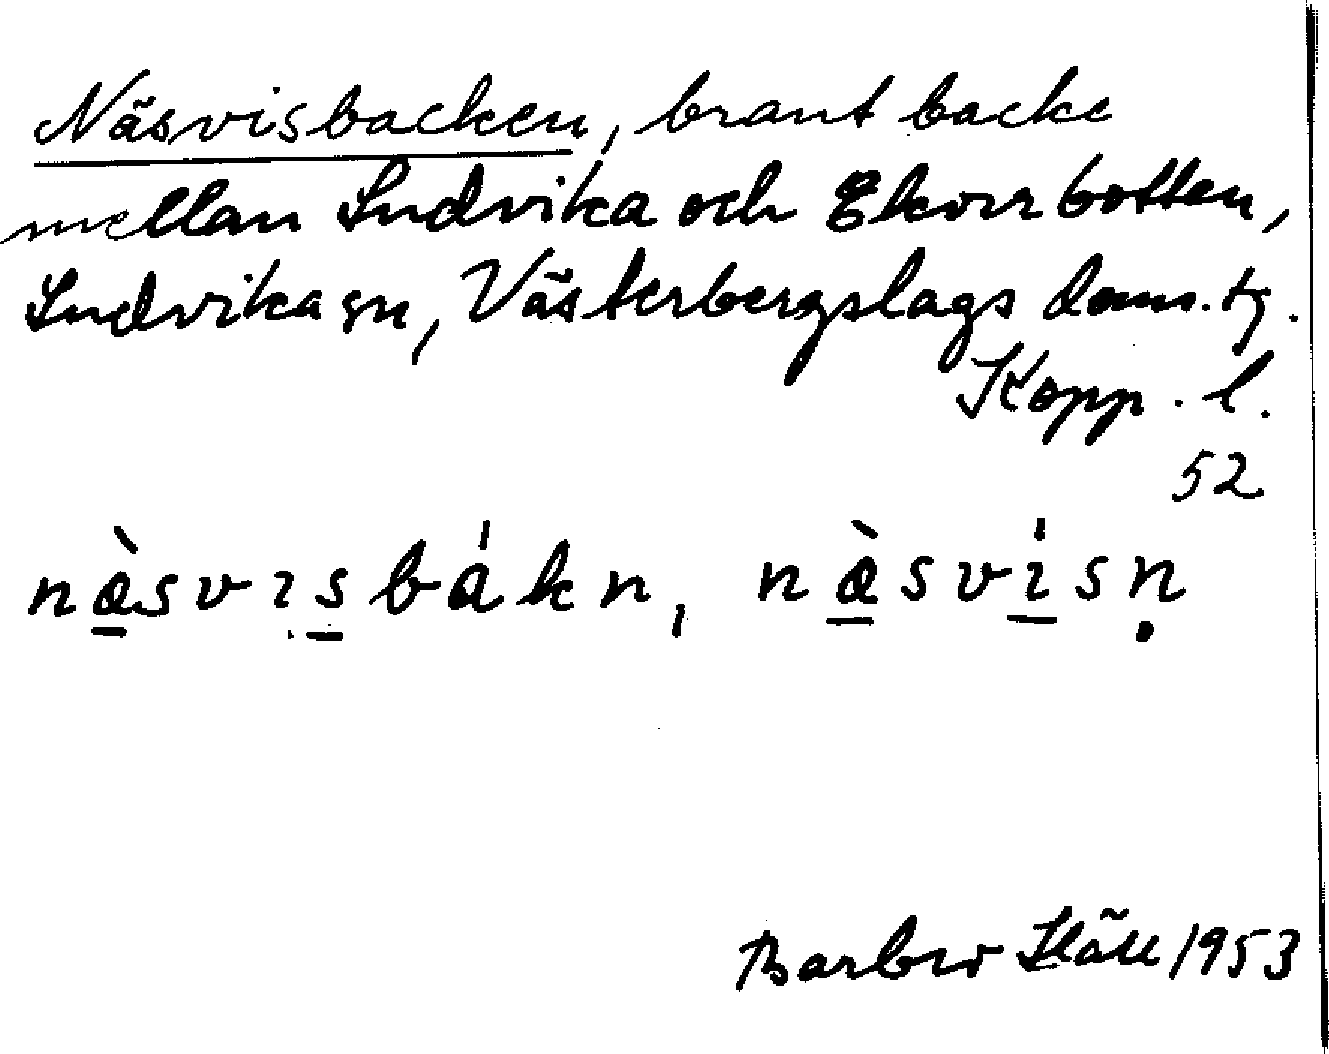 Näsvisbacken, brant backe
mellan Ludvika och Ekorrbotten,
Ludvika sn, Västerbergslags doms.tg.
Kopp. l.
52
næ̀svɪsbákn, næ̀svísṇ
Barbro 1953